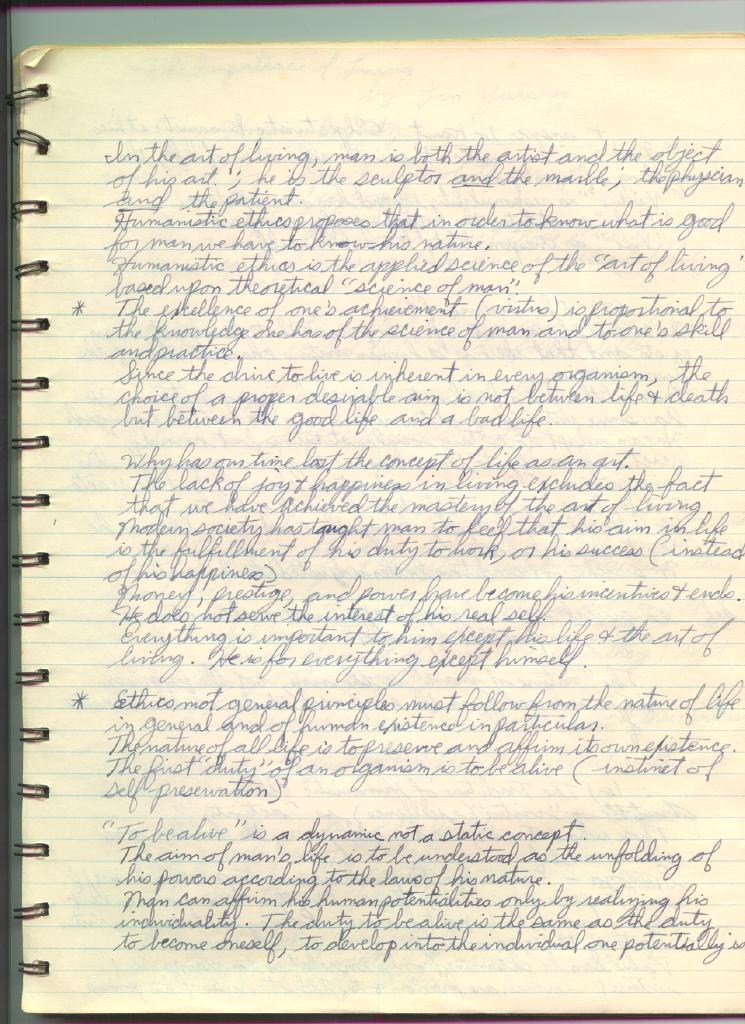 The Importance of Living
by Lin Yutang
In the art of living, man is both the artist and the object
of his art."; he is the sculptor and the marble; the physician
and the patient.
Humanistic ethics proposes that in order to know what is good
for man we have to know his nature.
Humanistic ethics is the applied science of the "art of living"
based upon theoretical "science of man"
* The excellence of one's achievement (virtus) is proportional to
the knowledge one has of the science of man and to one's skill
and practice.
Since the drive to live is inherent in every organism, the
choice of a proper desirable aim is not between life & death
but between the good life and a bad life.
Why has our time lost the concept of life as an art.
The lack of joy & happiness in living excludes the fact
that we have achieved the mastery of the art of living
Modern society has taught man to feel that his aim in life
is the fulfillment of his duty to work, or his success (instead
of his happiness)
Money, prestige, and power have become his incentives & ends.
He does not serve the interest of his real self.
Everything is important to him except his life & the art of
living. He is for everything except himself.
* Ethics not general principles must follow from the nature of life
in general and of human existence in particular.
The nature of all life is to preserve and affirm its own existence.
The first "duty" of an organism is to be alive (instinct of
self preservation)
"To be alive" is a dynamic not a static concept.
The aim of man's life is to be understood as the unfolding of
his powers according to the laws of his nature.
Man can affirm his human potentialities only by realizing his
individuality. The duty to be alive is the same as the duty
to become oneself, to develop into the individual one potentially is